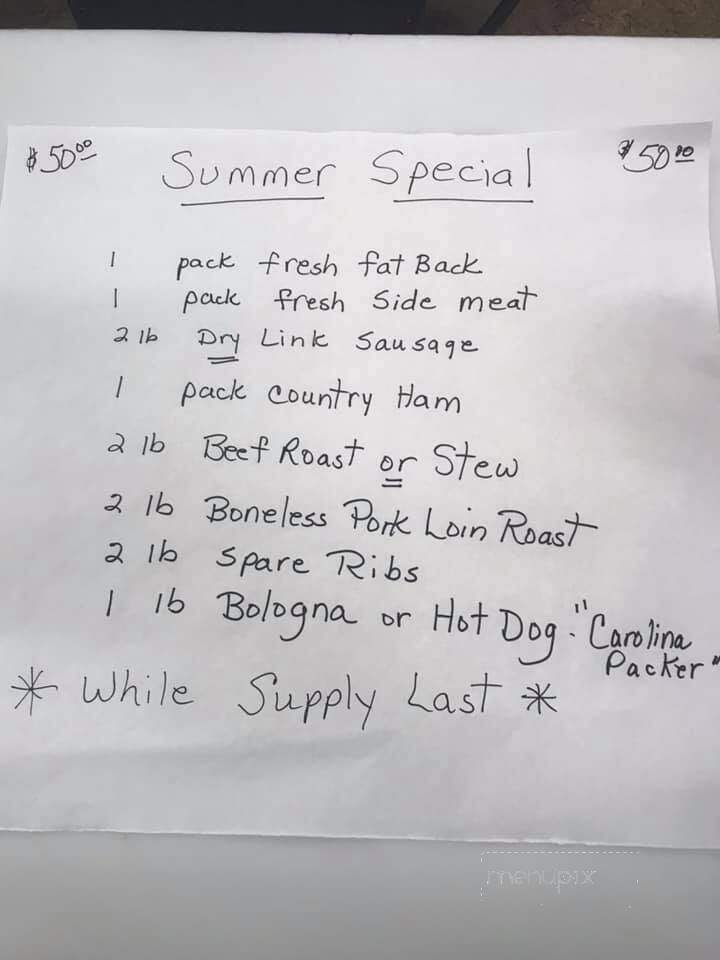 $50.00 Summer Special $50.00
1 pack fresh fat Back
1 pack fresh Side meat
2 lb Dry Link Sausage
1 pack Country Ham
2 lb Beef Roast or Stew
2 lb Boneless Pork Loin Roast
2 lb Spare Ribs
1 lb Bologna or Hot Dog. "Carolina
Packer"
* While Supply Last *
menupix